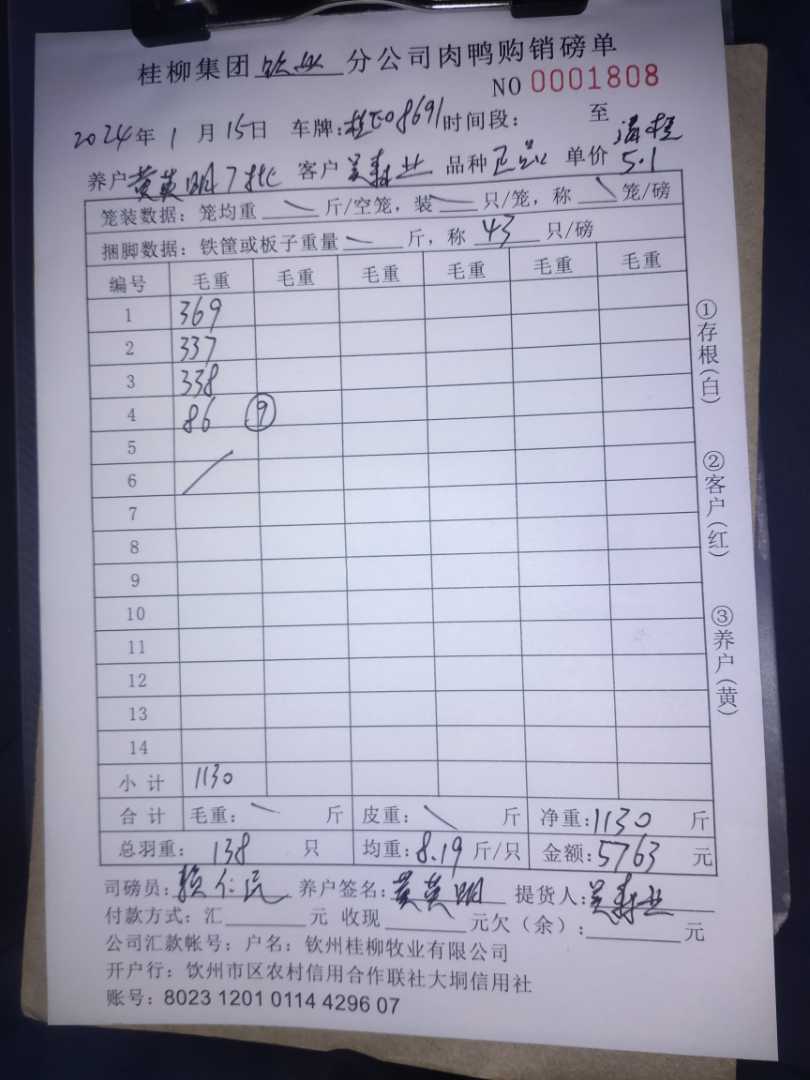 桂柳集团钦州分公司肉鸭购销磅单
NO 0001808
2024年1月15日 车牌:桂E08691时间段: 至
养户黄英明7批 客户吴森业 品种正品 单价5.1
笼装数据: 笼均重 斤/空笼, 装 只/笼, 称 笼/磅
捆脚数据: 铁筐或板子重量 斤, 称 43 只/磅
编号 毛重 毛重 毛重 毛重 毛重 毛重
1 369
2 337
3 338
4 86 ⑨
5
6
7
8
9
10
11
12
13
14
小计 1130
合计 毛重: 斤 皮重: 斤 净重:1130 斤
总羽重: 138 只 均重:8.19斤/只 金额:5763 元
司磅员: 养户签名:黄英明 提货人:吴森业
付款方式: 汇 元 收现 元欠(余): 元
公司汇款帐号: 户名: 钦州桂柳牧业有限公司
开户行: 钦州市区农村信用合作联社大垌信用社
账号: 8023 1201 0114 4296 07
①存根(白)
②客户(红)
③养户(黄)